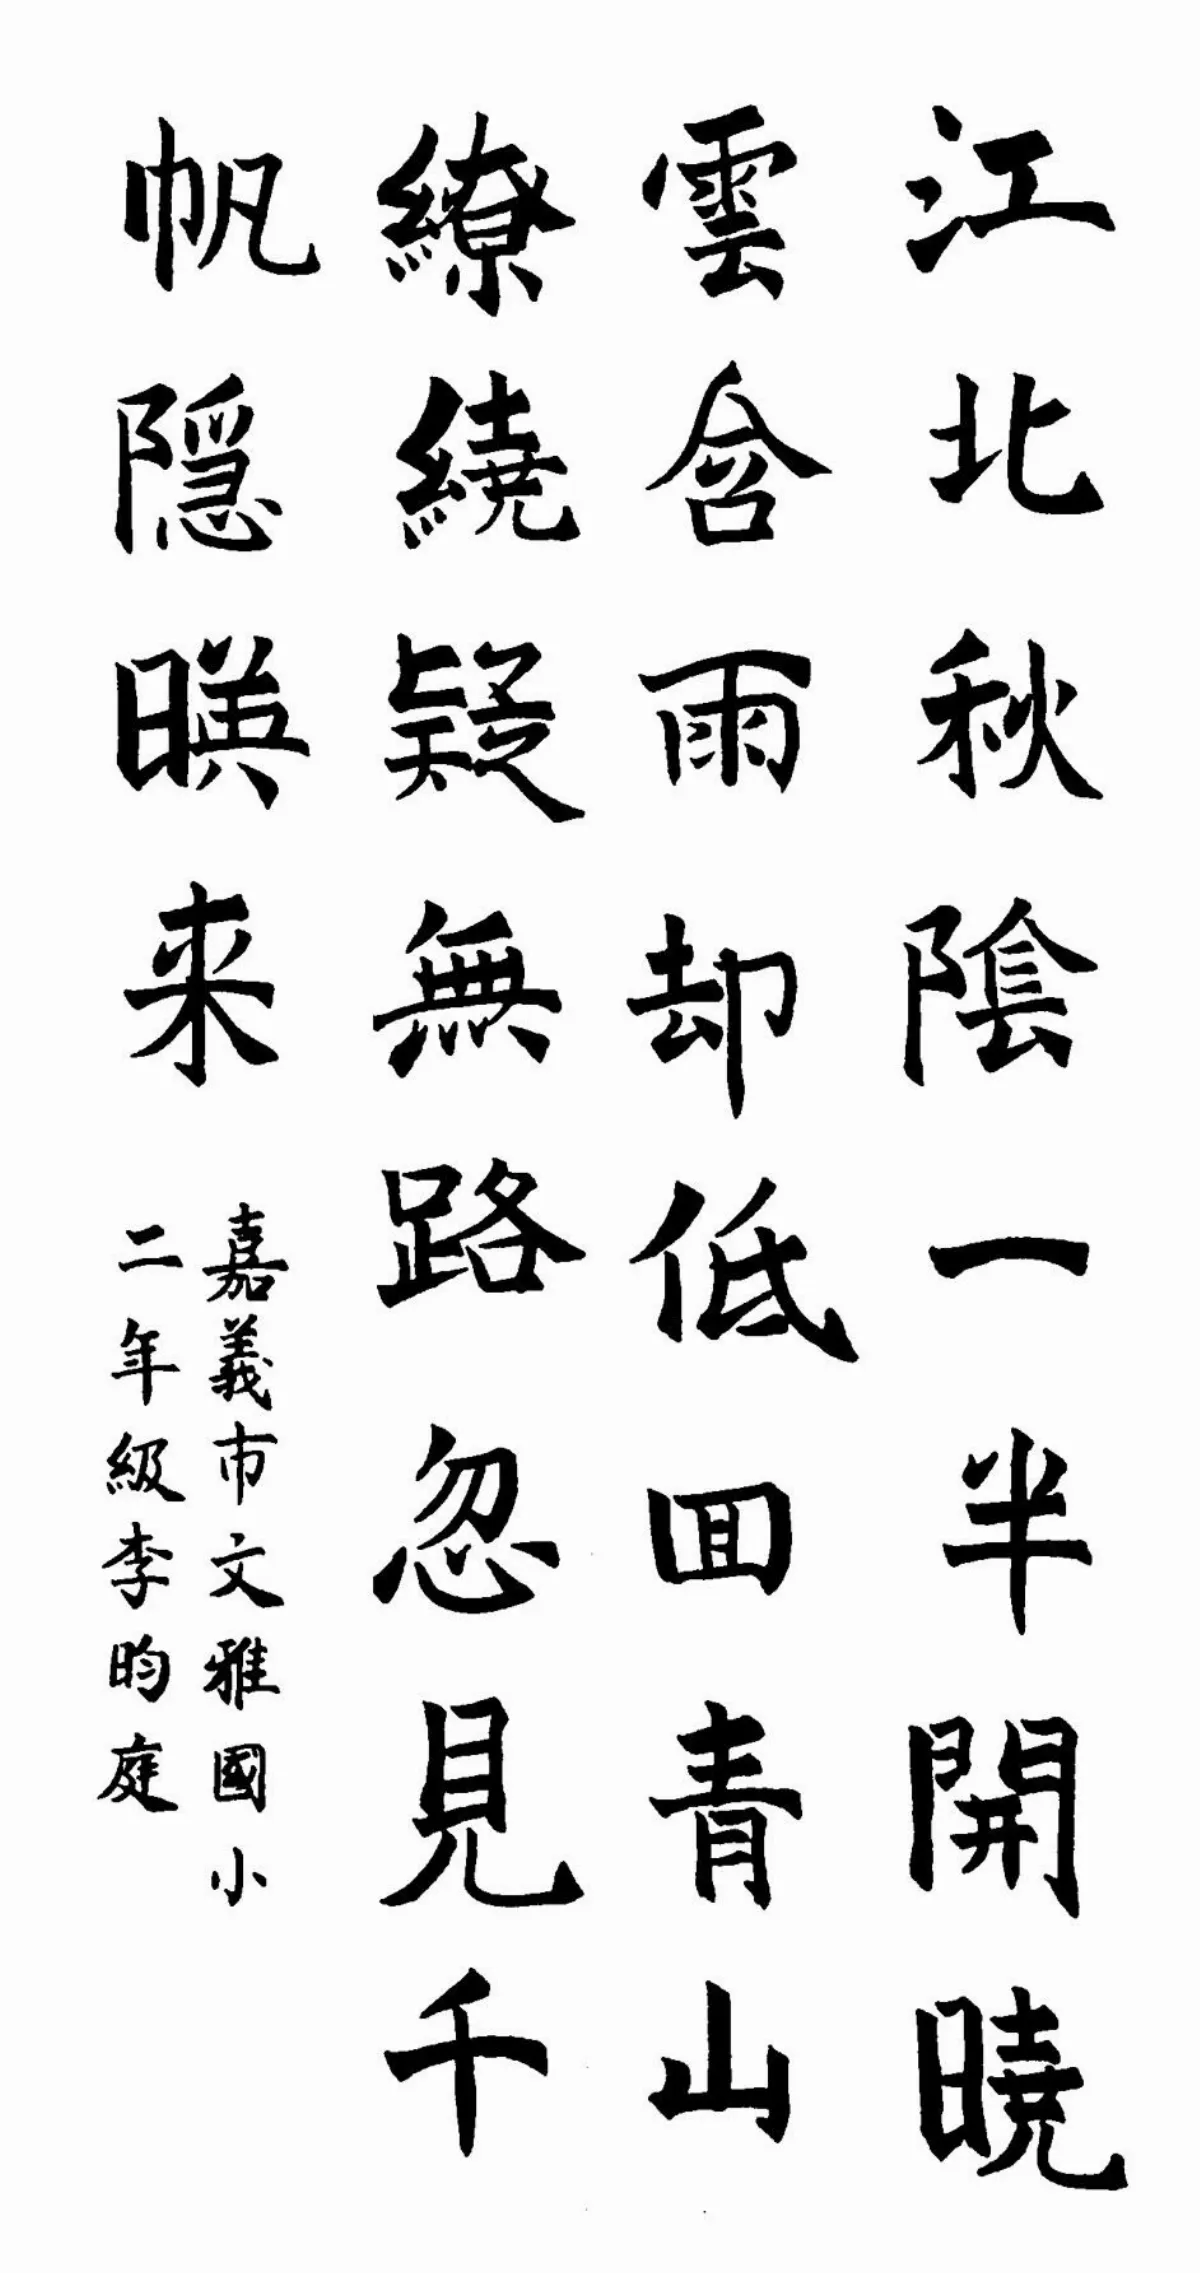 江北秋陰一半開曉
雲含雨却低回青山
繚繞疑無路忽見千
帆隱暎来
嘉義市文雅國小
二年級李昀庭